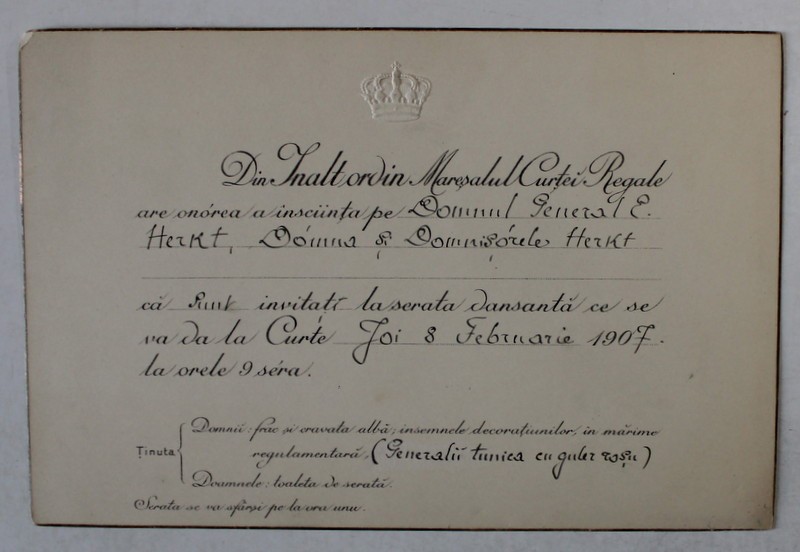 Din Inalt ordin Mareșalul Curței Regale
are onórea a însciința pe Domnul General E.
Herkt, Dómna și Domnișórele Herkt
că sunt invitați la serata dansantă ce se
va da la Curte Joi 8 Februarie 1907.
la orele 9 séra.
Ținuta
Domnii: frac și cravata albă; insemnele decorațiunilor, in mărime
regulamentară. (Generalii tunica cu guler roșu)
Doamnele: toaleta de serată.
Serata se va sfârși pe la ora unu.